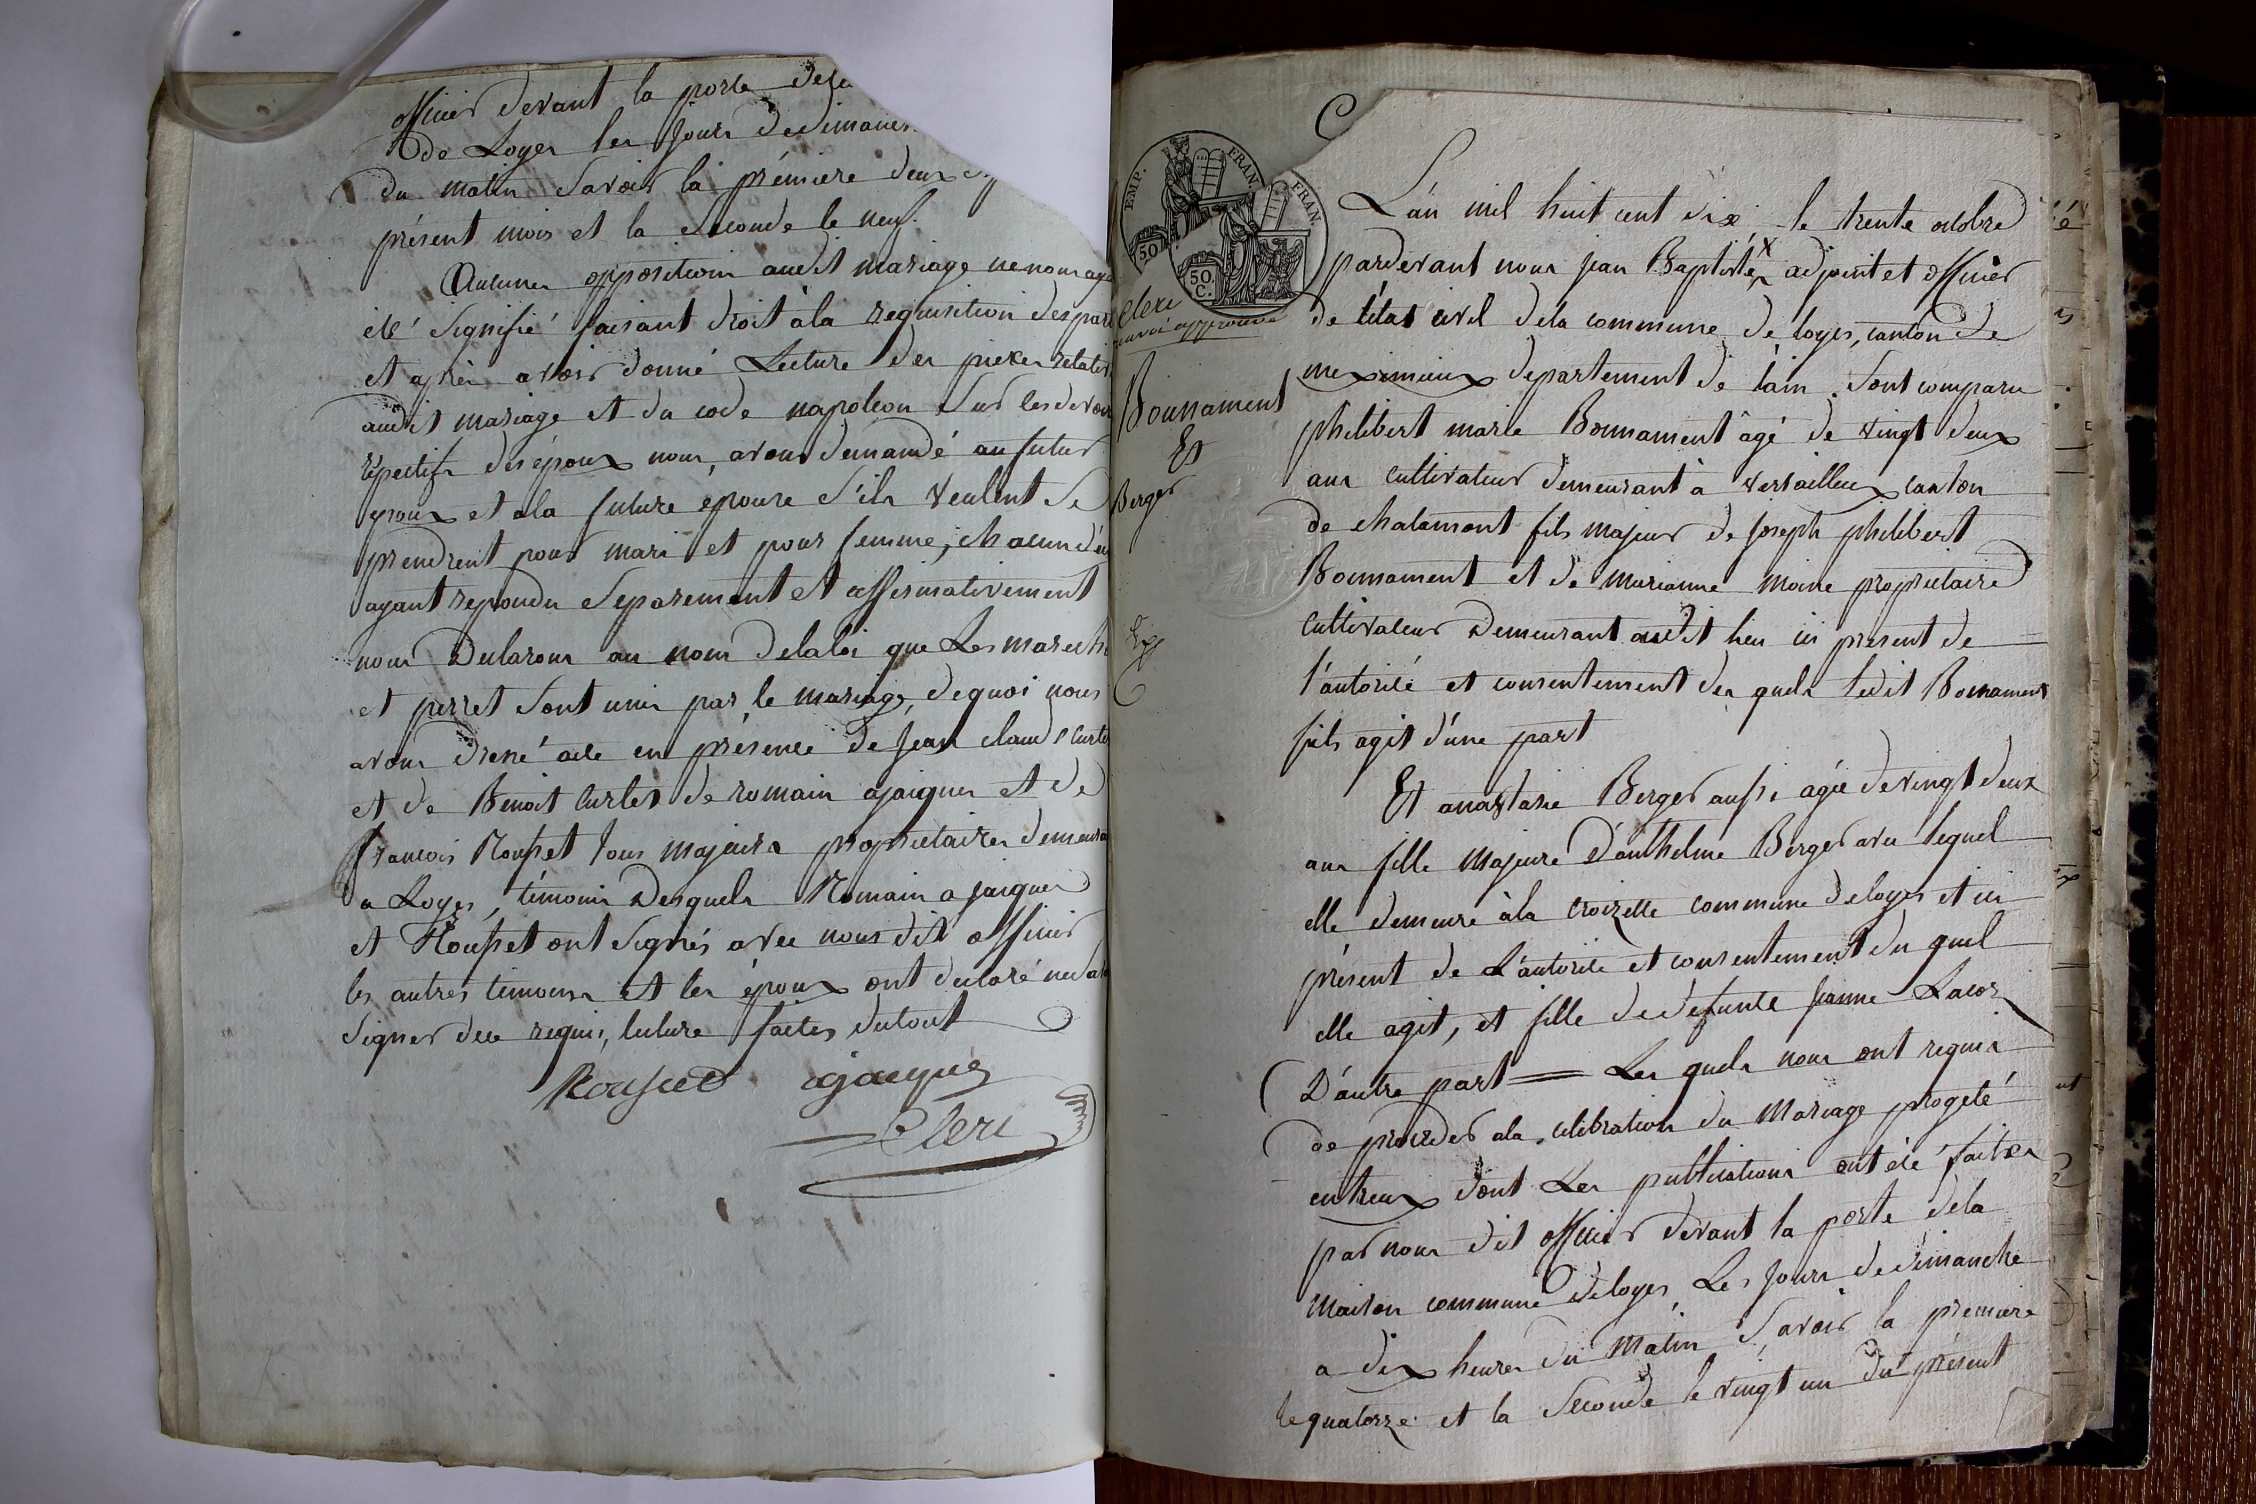 officier devant la porte de la
de Loyes les jours de dimanche
du matin Savoir la première deux
présent mois et la Seconde le neuf.
Aucunes opposition audit mariage ne nous
été Signifié faisant droit à la requisition des
et après avoir donné Lecture des pieces
audit mariage et du code napoléon Sur les
respectifs des époux nous avons demandé au futur
epoux et ala future epouse S'ils veulent Se
prendrent pour mari et pour femme, chacun
ayant repondu Separement et affirmativement
nous Declarons au nom dela loi que Les
et perret Sont unis par le mariage, dequoi nous
avons dressé acte en présence de Jean claude
et de Benoit Curtet de romain ajaigues et de
francois Rousset tous majeurs proprietaires
a Loyes, témoins Desquels Romain ajaigues
et Rousset ont Signés avec nous dit officier
les autres témoins et les époux ont declaré
Signer de ce requis, lecture faites dutout
Rousset
Clerc
EMP. FRAN.
50 C.
FRAN.
50 C.
Clerc
renvoi approuvé
Bonnament
Et
Berger
L'an mil huit cent dix, le trente octobre
pardevant nous jean Baptiste x adjoint et officier
de l'état civil dela commune de loyes, canton de
meximieux departement de l'ain. Sont comparu
philibert marie Bonnament âgé de vingt deux
ans cultivateur demeurant à versailleux canton
de chalamont fils majeur de Joseph philibert
Bonnament et de marianne Moine proprietaire
cultivateur Demeurant audit lieu ici présent de
l'autorité et consentement des quels ledit Bonnament
fils agit d'une part
Et anastasie Berger aussi agée de vingt deux
ans fille majeure D'anthelme Berger avec lequel
elle demeure à la croizette commune de loyes et ici
présent de L'autorité et consentement du quel
elle agit, et fille de défunte Jeanne
D'autre part = Les quels nous ont requis
de proceder ala celebration du Mariage progeté
entreux dont Les publications ont été faites
par nous dit officier devant la porte dela
Maison commune de loyes Les Jours de dimanche
a dix heures du Matin Savoir la premiere
le quatorze et la Seconde le vingt un du présent